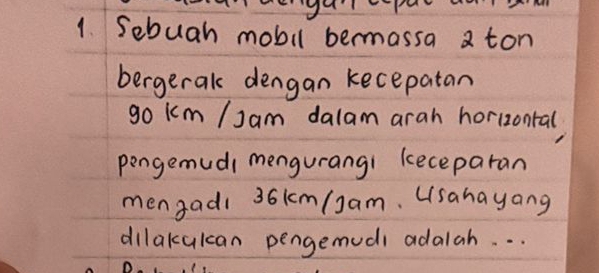 1. Sebuah mobil bermassa 2 ton
bergerak dengan kecepatan
90 km/jam dalam arah horizontal,
pengemudi mengurangi kecepatan
menjadi 36 km/jam. Usaha yang
dilakukan pengemudi adalah ...